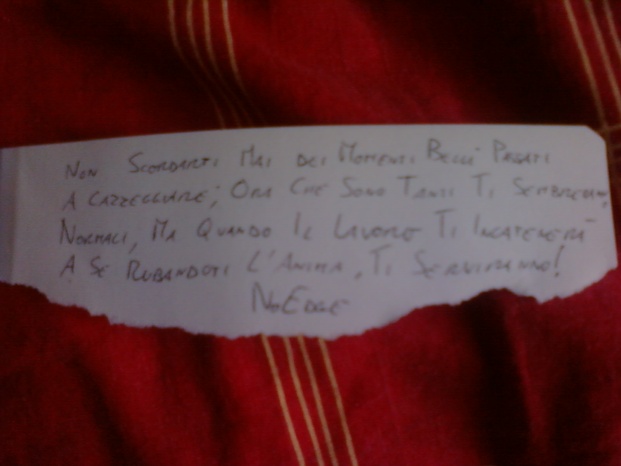 Non Scordarti Mai dei Momenti Belli Passati
A cazzeggiare; Ora Che Sono Tanti Ti Sembreranno
Normali, Ma Quando Il Lavoro Ti Incatenerà
A Se Rubandoti L'Anima, Ti Serviranno!
NoEdge